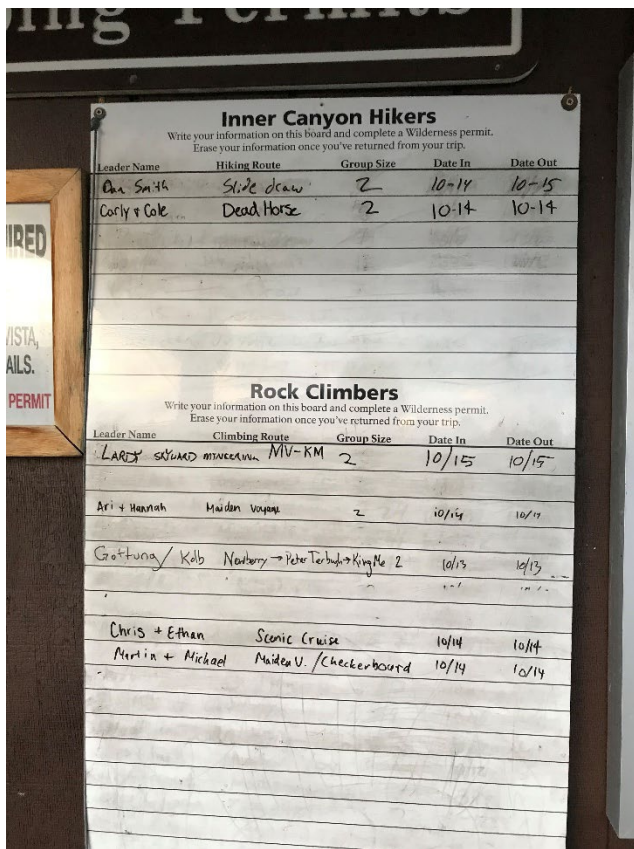 ing Permits
Inner Canyon Hikers
Write your information on this board and complete a Wilderness permit.
Erase your information once you've returned from your trip.
Leader Name Hiking Route Group Size Date In Date Out
Dan Smith Slide draw 2 10-14 10-15
Carly & Cole Dead Horse 2 10-14 10-14
IRED
VISTA,
AILS.
PERMIT
Rock Climbers
Write your information on this board and complete a Wilderness permit.
Erase your information once you've returned from your trip.
Leader Name Climbing Route Group Size Date In Date Out
MV-KM 2 10/15 10/15
Ari + Hannah Maiden Voyage 2 10/14
Gottung/Kolb Newberry → Peter Terbush → King Me 2 10/13 10/13
Chris + Ethan Scenic Cruise 10/14 10/14
Martin + Michael Maiden V. /Checkerboard 10/14 10/14